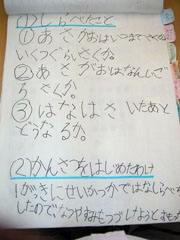 (1)しらべたこと
①あさがおはいつまでさくか
いくつぐらいさくか。
②あさがおはなんしてし
らさくか。
③はなはさいたあと
どうなるか。
(2)かんさつをはじめたわけ
1がきにせいかつかではなしらべを
したので、なつやすみもつづけようとおもった